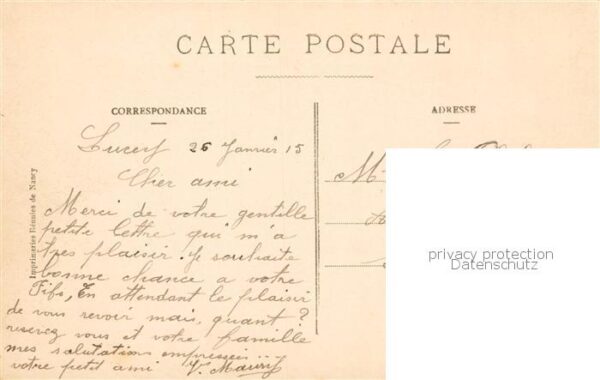 CARTE POSTALE
CORRESPONDANCE
ADRESSE
26 Janvier 15
M
Cher ami
Merci de votre gentille
petite lettre qui m'a
tres plaisir. Je souhaite
bonne chance a votre
Fifs, En attendant le plaisir
de vous revoir mais, quant?
recevez vous et votre famille
mes salutations
votre petit ami V.
Imprimeries Réunies de Nancy
privacy protection
Datenschutz